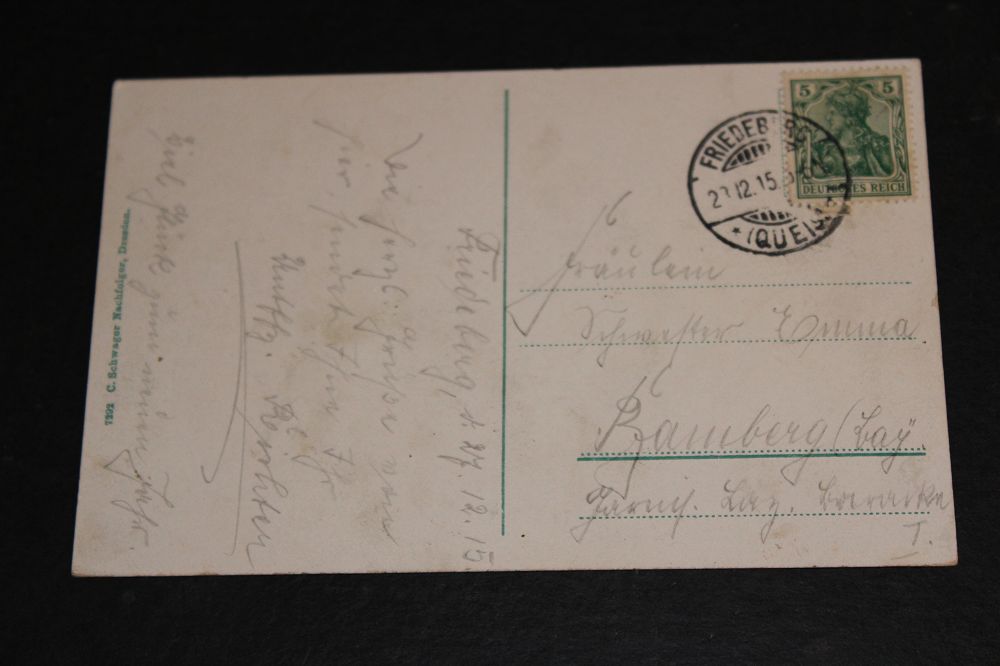 Friedeberg, d. 27. 12. 15.
Die herzl. Grüße von
hier, sendet Ihnen Ihr
Richter
Viel Glück zum neuen Jahr.
7292 C. Schwager Nachfolger, Dresden.
5 5
DEUTSCHES REICH
FRIEDEBERG
12.15
(QUEIS)
Fräulein
Schwester Emma
Bamberg (Bay.
Laz. Baracke
I.